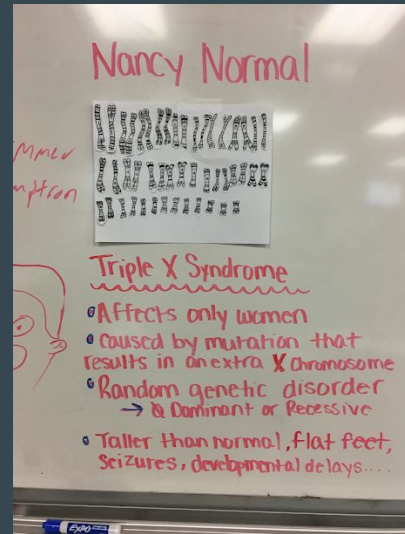 Nancy Normal
Triple X Syndrome
Affects only women
caused by mutation that
results in an extra X Chromosome
Random genetic disorder
→ Dominant or Recessive
Taller than normal, flat feet,
Seizures, developmental delays....
EXPO